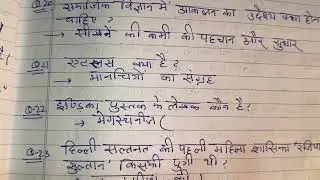 Q-20 सामाजिक विज्ञान में आकलन का उद्देश्य क्या होन
चाहिए?
→ सीखने की कमी की पहचान और सुधार
Q-21 एटलस क्या है?
→ मानचित्रों का संग्रह
Q-22 इण्डिका पुस्तक के लेखक कौन है?
→ मेगस्थनीज।
Q-23 दिल्ली सल्तनत की पहली महिला शासिका 'रजिया
सुल्तान' किसकी पुत्री थी?